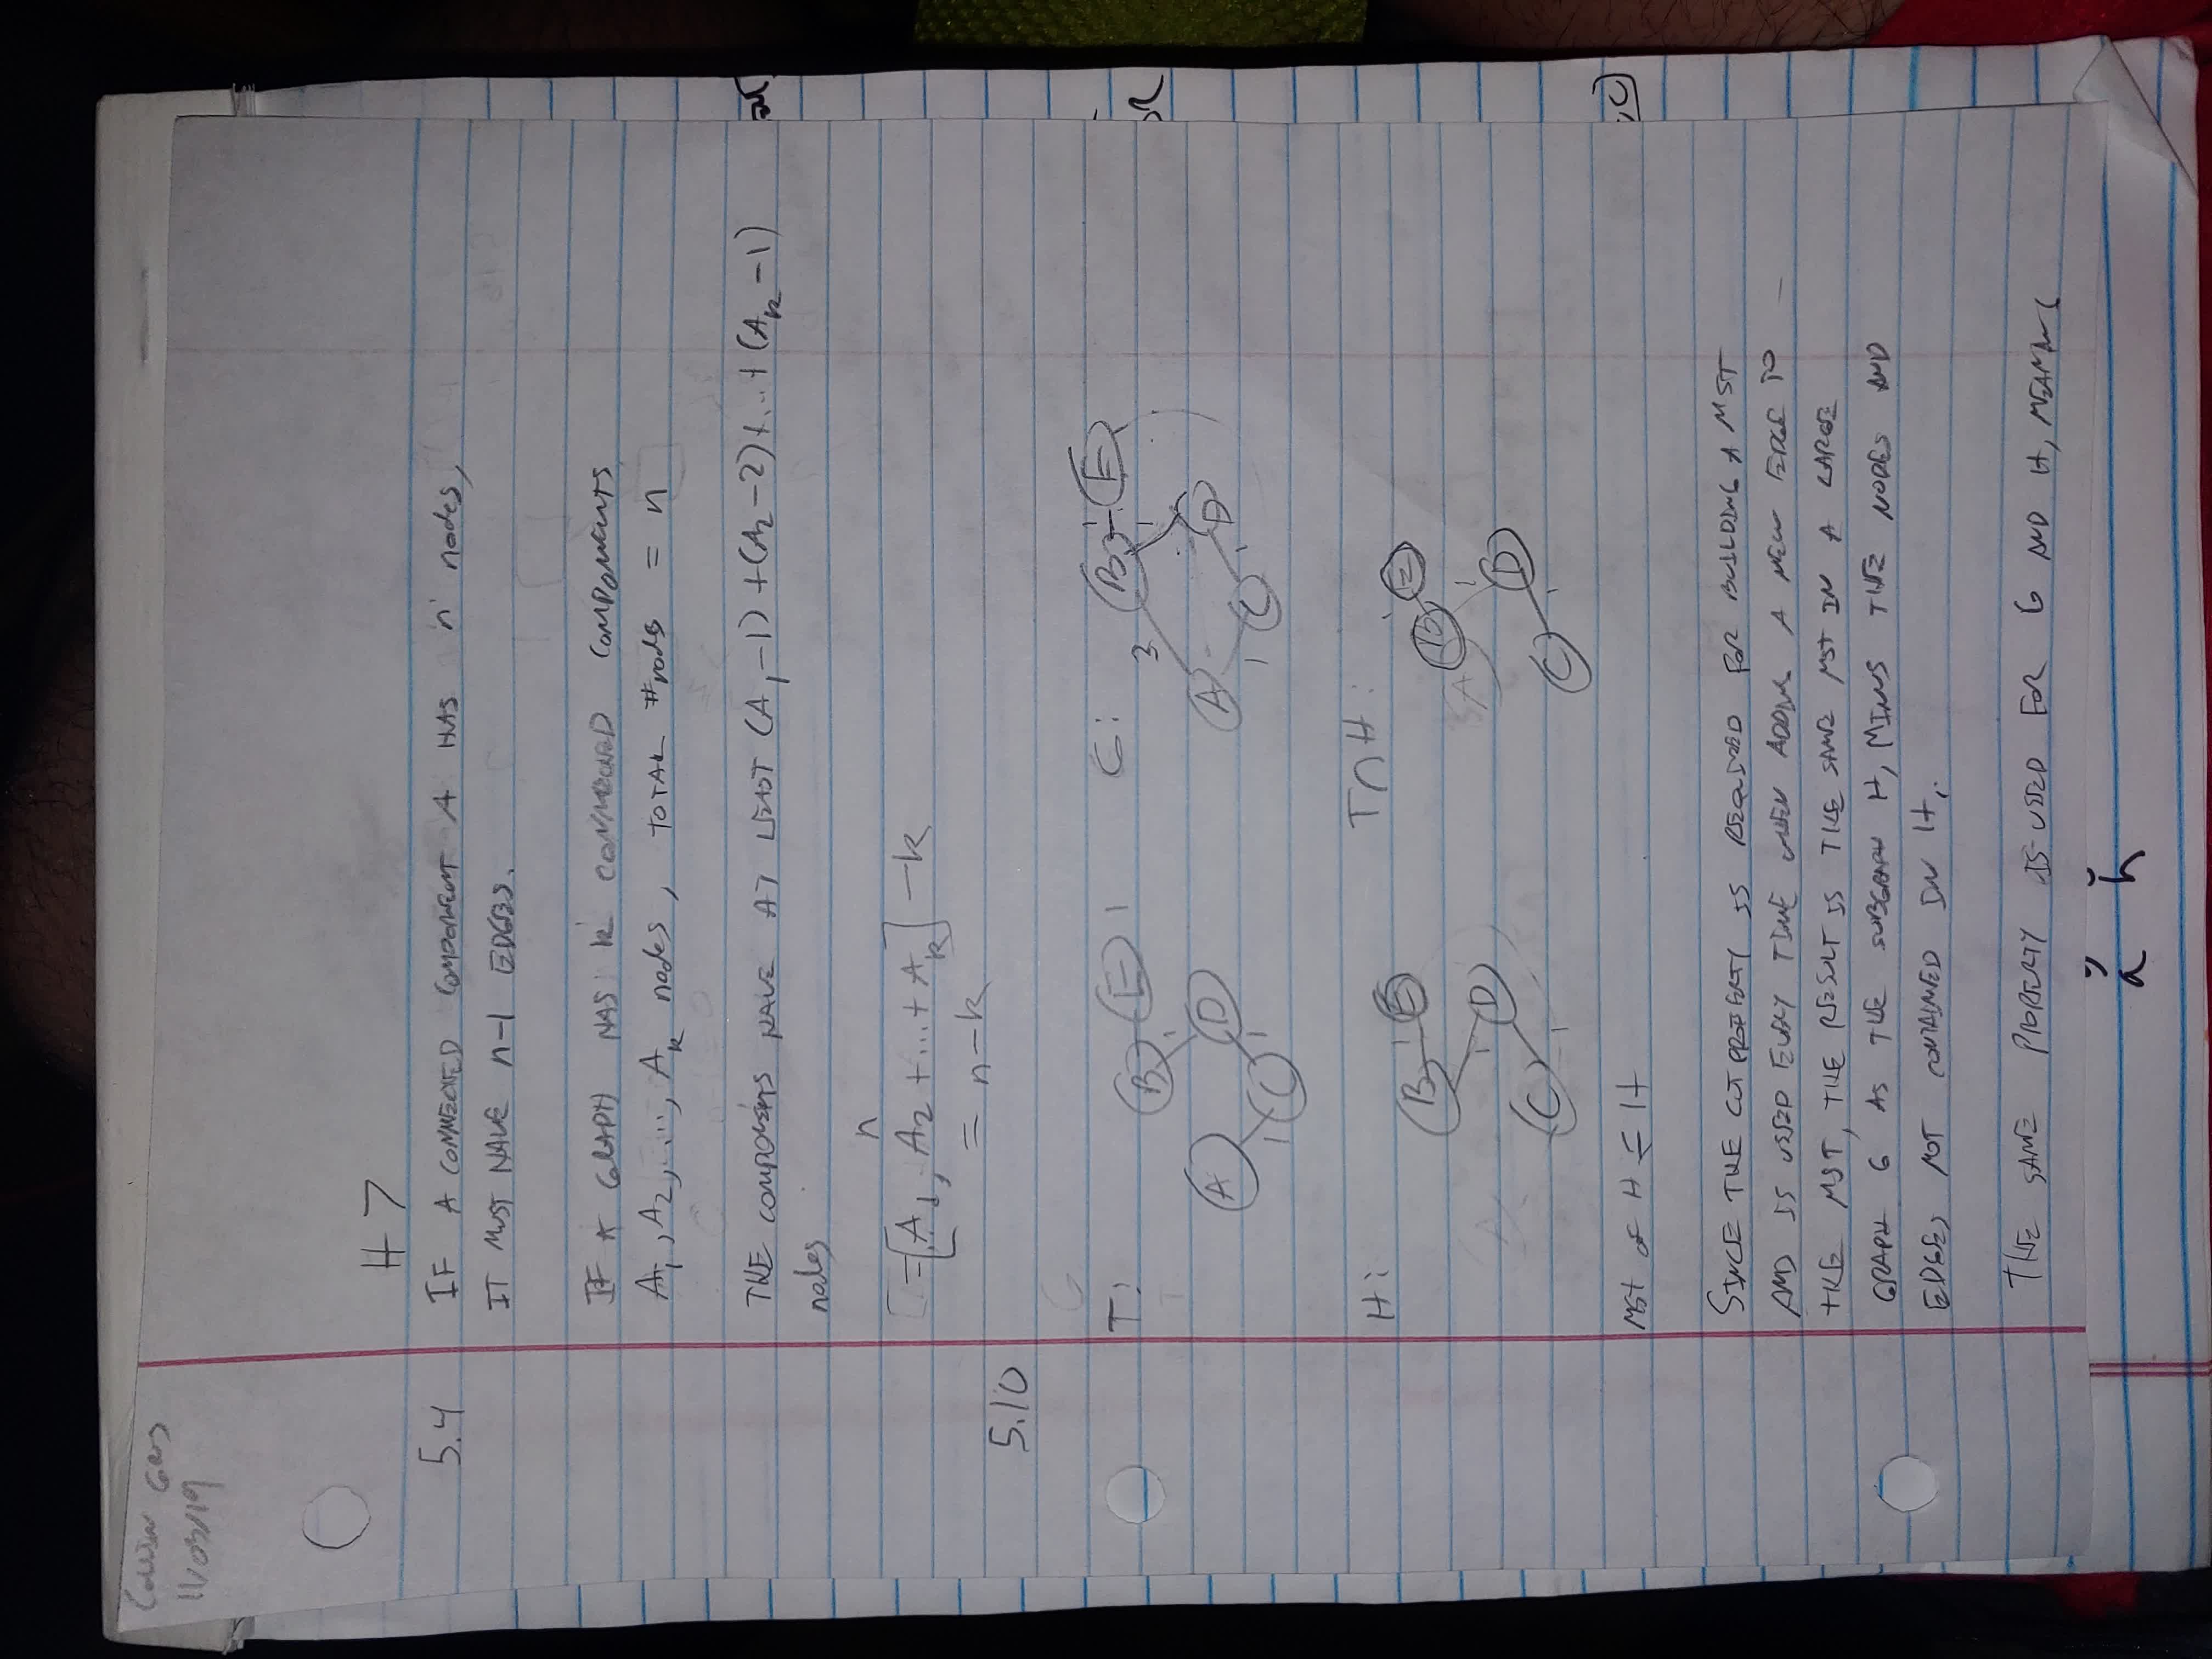 11/03/19
H7
5.4 IF A CONNECTED COMPONENT A HAS n nodes,
IT MUST HAVE n-1 EDGES.
IF A GRAPH HAS k CONNECTED COMPONENTS
A1, A2, ..., Ak nodes, TOTAL #nodes = n
THE COMPONENTS HAVE AT LEAST (A1-1)+(A2-2)+...+(Ak-1)
nodes
n
[A1, A2+...+Ak]-k
= n-k
5.10
T: G:
B E 1 B 1 E
3 1
A D A D
1 C 1 1 C 1
H: T∩H:
B E B E
A
D 1 D
C 1 C 1
MST of H ⊆ H
SINCE THE CUT PROPERTY IS REQUIRED FOR BUILDING A MST
AND IS USED EVERY TIME WHEN ADDING A NEW EDGE TO
THE MST, THE RESULT IS THE SAME MST IN A LARGE
GRAPH G AS THE SUBGRAPH H, MINUS THE NODES AND
EDGES NOT CONTAINED IN H.
THE SAME PROPERTY IS USED FOR G AND H, MEANING